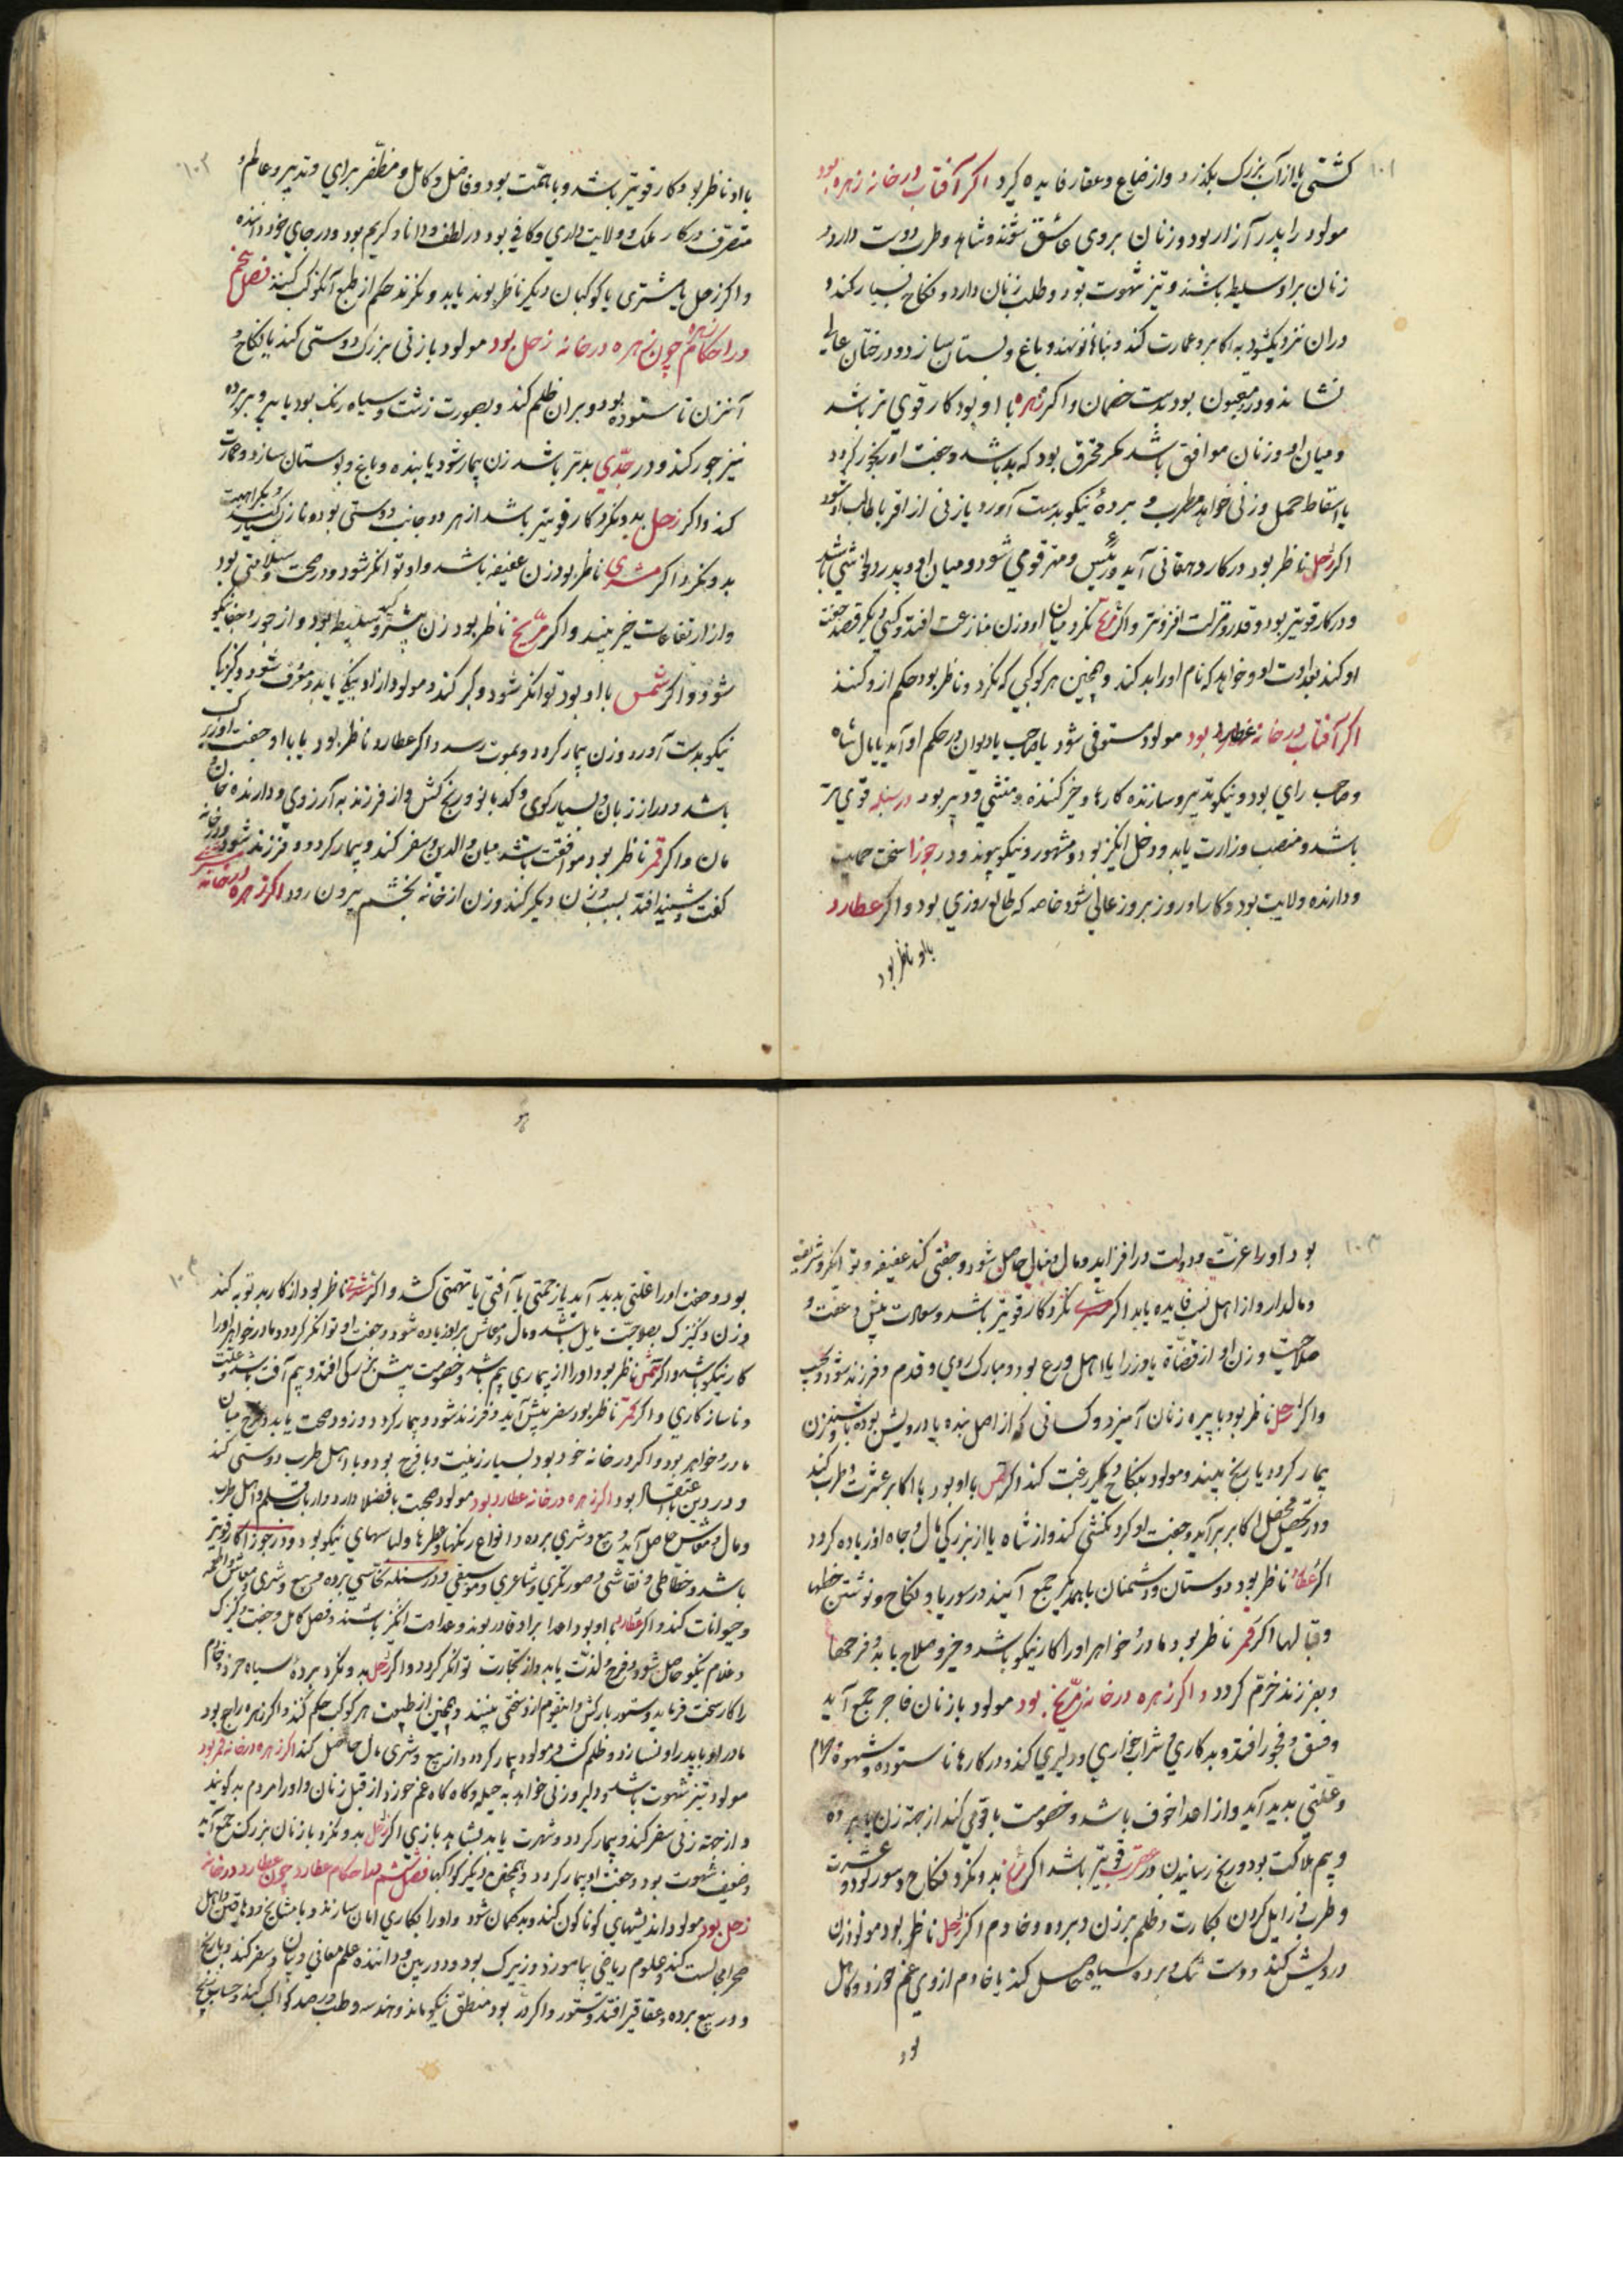 ۱۰۱
کشتی یا از آب بزرک بکذرد و از ضیاع و عقار فایده کیرد اکر آفتاب در خانه زهره بود
مولود را پدر آزار بود و زنان بر وی عاشق شوند و شاهد و طرب دوست دارد و
زنان بر او سلیط باشند و تیز شهوت بود و طلب زنان دارد و نکاح بسیار کند و
در آن نزدیک شود به اکابر و عمارت کند و بناها نو نهد و باغ و بستان سازد و درختان عالی
نشاند و در مغبون بود بدست خصمان و اکر زهره با او بود کار قوی تر باشد
و میان او و زنان موافق باشد مکر محترق بود که بد باشد و جفت او رنجور کردد
یا اسقاط حمل و زنی خواهد مطرب و بردهٔ نیکو بدست آورد یا زنی از اقربا طالب او شود
اکر زحل ناظر بود در کار دهقانی آید و رئیس و مهتر قومی شود و میان او و پدر وحشتی باشد
و در کار قویتر بود و قدر و منزلت افزونتر و اکر مریخ نکرد میان او و زن منازعت افتد و کسی دیکر قصد جفت
او کند بعداوت او و خواهد که نام او را بد کند و همچنین هر کوکبی که نکرد و ناظر بود حکم از و کنند
اکر آفتاب در خانه عطارد بود مولود مستوفی شود یا صاحب یا دیوان در حکم او آید یا مال شاه
و صاحب رای بود و نیکو تدبیر و سازنده کارها و خیر کننده و منشی و دبیر بود در سنبله قوی تر
باشد و منصب وزارت یابد و دخل انکیز بود و مشهور و نیکو پیوند و در جوزا سخت حمیت
و دارنده ولایت بود و کار او روز بروز عالی شود خاصه که طالع روزی بود و اکر عطارد
با او ناظر بود
۱۰۲
با او ناظر بود کار قویتر باشد و با همّت بود و فاضل و کامل و مظفّر برای و تدبیر و عالم و
متصرف در کار ملک و ولایت داری و کافی بود در لطف و دانا و کریم بود و در جای خود داننده
و اکر زحل یا مشتری یا کوکبان دیکر ناظر بوند باید و نکرند حکم از طبع آنکوکب کنند فصل پنجم
در احکام زهره چون زهره در خانه زحل بود مولود با زنی بزرک دوستی کند یا نکاح و
آنزن ناستوده بود و بر آن ظلم کند و بصورت زشت و سیاه رنک بود یا پیر و بر برده
نیز جور کند و در جدی بدتر باشد زن بیمار شود یا بنده و باغ و بوستان سازد و عمارت
کند و اکر زحل بدو نکرد کار قویتر باشد از هر دو جانب دوستی بود
بدو نکرد و اکر مشتری ناظر بود زن عفیفه باشد و او توانکر شود و در صحت و سلامتی بود
و از ارتفاعات خیر بیند و اکر مریخ ناظر بود زن سلیطه بود و از جور و جفا نیکو
شود و اکر شمس با او بود توانکر شود و کبر کند و مولود از او نیکی یابد و معروف شود و کنیزک
نیکو بدست آورد و زن بیمار کردد و بموت رسد و اکر عطارد ناظر بود یا با او جفت او زیرک
باشد و دراز زبان و بسیار کوی و کدبانو و رنج کش و از فرزند به آرزوی و دارنده خان و
مان و اکر قمر ناظر بود موافقت باشد میان والدین و سفر کند و بیمار کردد و فرزند شود
کفت و شنید افتد بسبب زن دیکر کند و زن از خانه بخشم بیرون رود اکر زهره در خانه مشتری
۱۰۳
بود او را عزّت و دولت در افزاید و مال و منال حاصل شود و جفتی کند عفیفه و توانکر و شریف
و مالدار و از اهل نسب فایده یابد اکر مشتری نکرد کار قویتر باشد و سعادت بیش و عفت و
صلاحیت و زن او از قضاة یا وزرا یا اهل ورع بود و مبارک روی و قدم و فرزند شود و نجیب
و اکر زحل ناظر بود با پیره زنان آمیزد و کسانی که از اصل بنده یا درویش بوده باشند و زن
بیمار کردد یا رنج بیند و مولود بنکاح دیکر رغبت کند اکر شمس با او بود با اکابر عشرت و طرب کند
و در محفل اکابر بر آید و جفت او کردنکشی کند و از شاه یا از بزرکی مال و جاه او زیاده کردد
اکر عطارد ناظر بود دوستان و دشمنان با همدیکر جمع آیند در سور یا و نکاح و نوشتن خطها
و قبالها اکر قمر ناظر بود مادر و خواهر او را کار نیکو باشد و خیر و صلاح یابد و فرحها
و بفرزند خرّم کردد و اکر زهره در خانه مرّیخ بود مولود با زنان فاجر جمع آید
و فسق و فجور افتد و بدکاری و شراب خواری و دلیری کند و در کارها ناستوده و شهوة حرام
و علّتی بدید آید و از اعدا خوف باشد و خصومت با قومی کند از جهة زن یا برده
و بیم هلاکت بود و رنج رسانیدن در عقرب قویتر باشد اکر مریخ بدو نکرد نکاح و سور کردد و عشرت
و طرب و زایل کردن بکارت و ظلم بر زن و برده و خادم اکر زحل ناظر بود مولود زن
درویش کند و دوست تنک و برده سیاه حاصل کند یا خادم از وی غم خورد و کاهل
بود
۱۰۴
بود و جفت او را علّتی بدید آید یا زحمتی یا آفتی یا تهمتی کشد و اکر مشتری ناظر بود از کار بد توبه کند
و زن و کنیزک بصلاحیّت مایل باشد و مال و معاش بر او زیاده شود و جفت او توانکر کردد و مادر خواهر او را
کار نیکو باشد و اکر شمس ناظر بود او را از بیماری بیم باشد و خصومت پیش بزرکی افتد و بیم آفت باشد و علّت
و ناسازکاری و اکر قمر ناظر بود سفر پیش آید و فرزند شود و بیمار کردد و زود صحت یابد و فرح میان
مادر و خواهر بود و اکر در خانه خود بود بسیار زینت و با فرح بود و با اهل طرب دوستی کند
و در دین با اعتقاد بود اکر زهره در خانه عطارد بود مولود صحبت با فضلا دارد و ارباب قلم و اهل طرب
و مال و معاش حاصل آید و بیع و شری برده و انواع رنکها و عطرها و لباسهای نیکو بود و در جوزا کار قویتر
باشد و خطّاطی و نقاشی و صورتکری و شاعری و موسیقی و در سنبله نخّاسی برده و بیع و شری
و حیوانات کند و اکر عطارد با او بود اعدا بر او قادر بوند و عداوت انکیز باشند و فصل کامل و جفت و کنیزک
و غلام نیکو حاصل شود و فرح و لذّت یابد و از تجارت توانکر کردد و اکر زحل بدو نکرد بردهٔ سیاه خرد و خادم
را کار سخت فرماید و ستور بارکش و اینقوم از و سختی بینند و همچنین از طبیعت هر کوکب حکم کند و اکر زهره راجع بود
مادر او با پدر او نسازد و ظلم کشد و مولود بیمار کردد و از بیع و شری مال حاصل کند اکر زهره در خانه قمر بود
مولود تیز شهوت باشد و دلیر و زنی خواهد به حیله و کاه کاه غم خورد از قبل زنان و او را مردم بد کویند
و از جهة زنی سفر کند و بیمار کردد و شهرت یابد بشاهد بازی اکر زحل بدو نکرد با زنان بزرک جمع آید
و ضعیف شهوت بود و جفت او بیمار کردد و همچنین دیکر کواکبها فصل ششم در احکام عطارد چون عطارد در خانه
زحل بود مولود اندیشهای کوناکون کند و بد کمان شود و او را بکاری امان سازند و با مشایخ و دهاقین و اهل
صحرا مجالست کند و علوم ریاضی بیاموزد و زیرک بود و دوربین و داننده علم معانی و بیان و سفر کند و تاریخ
و در بیع برده و عقاقیر افتد و ستور و اکر در بود منطق نیکو داند و هندسه و طب و رصد کواکب کند و حساب